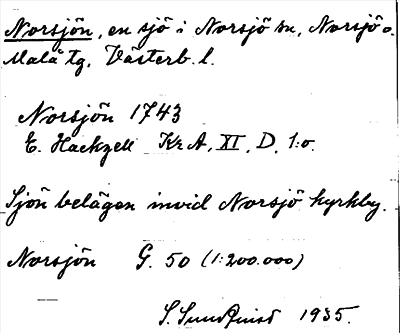 Norsjön, en sjö i Norsjö sn, Norsjö o.
Malå tg, Västerb. l.
Norsjön 1743
E. Hackzell Kr A, XI, D, 1:o.
Sjön belägen invid Norsjö kyrkby.
Norsjön G. 50 (1:200.000)
S. Sundquist 1935.